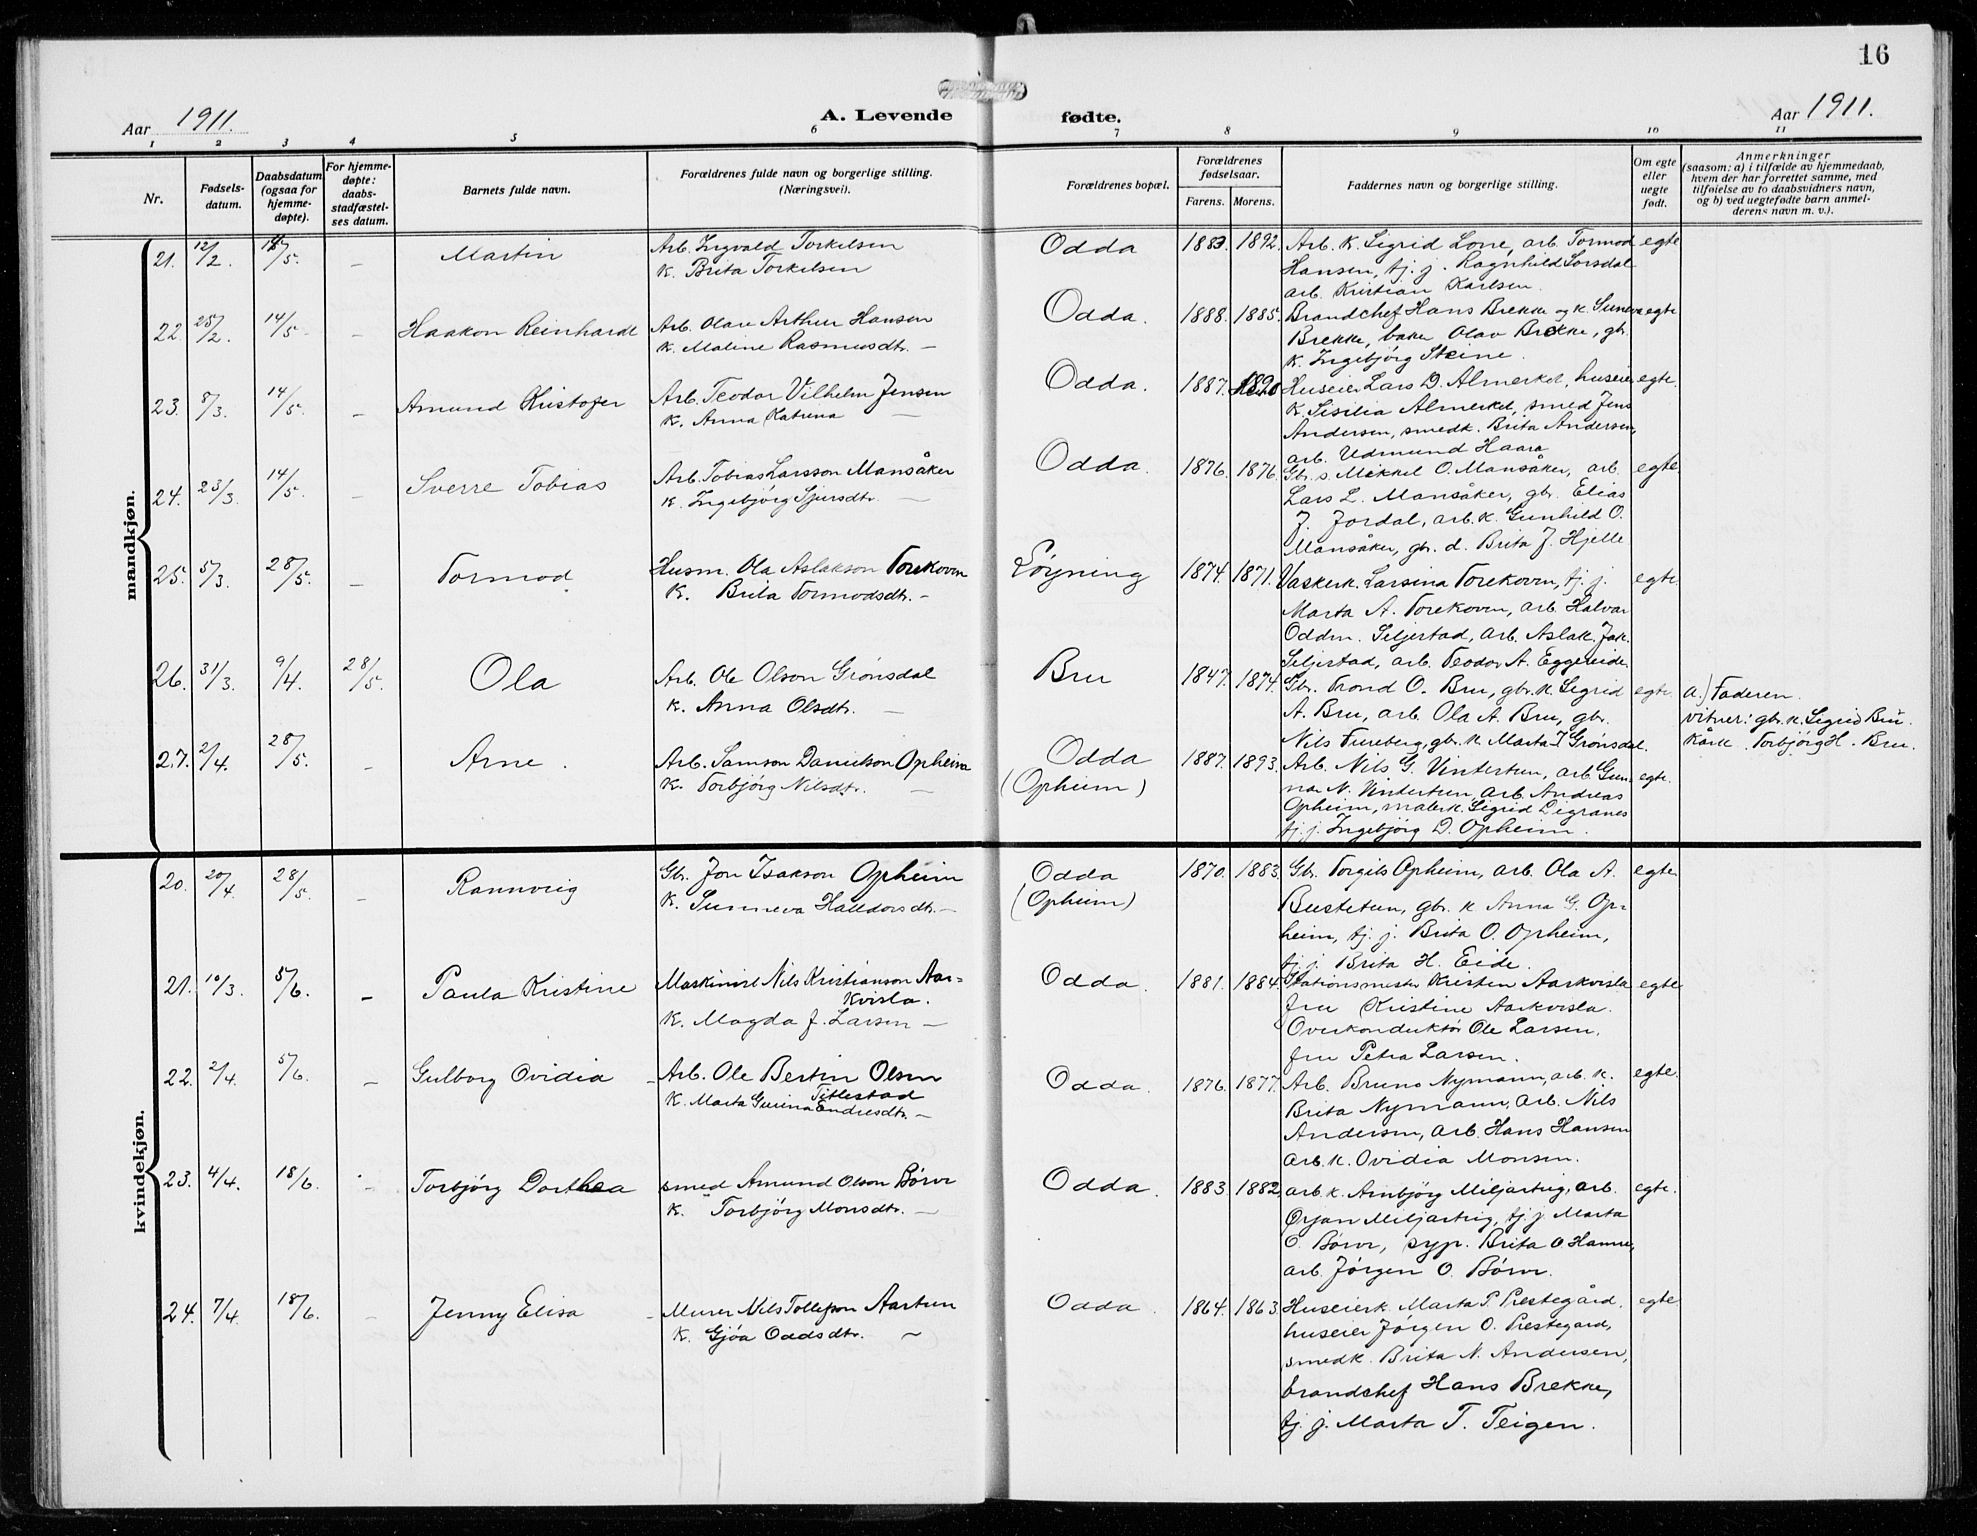 16
Aar 1911.
A. Levende fødte.
Aar 1911.
1 2 3 4 5 6 7 8 9 10 11
Nr.
Fødsels-
datum.
Daabsdatum
(ogsaa for
hjemme-
døpte).
For hjemme-
døpte:
daabs-
stadfæstel-
ses datum.
Barnets fulde navn.
Forældrenes fulde navn og borgerlige stilling.
(Næringsvei).
Forældrenes bopæl.
Forældrenes
fødselsaar.
Farens. Morens.
Faddernes navn og borgerlige stilling.
Om egte
eller
uegte
født.
Anmerkninger
(saasom: a) i tilfælde av hjemmedaab,
hvem der har forrettet samme, med
tilføielse av to daabsvidners navn,
og b) ved uegtefødte barn anmel-
derens navn m. v.).
mandkjøn.
21. 12/2. 14/5. – Martin
Arb. Ingvald Torkelsen
K. Brita Torkelsen
Odda 1883. 1892.
Arb. K. Sigrid Lone, arb. Tormod
Hansen, tj. j. Ragnhild Sorsdal
arb. Kristian Karlsen.
egte
22. 25/2. 14/5. – Haakon Reinhardt
Arb. Olav Arthur Hansen
K. Maline Rasmusdtr. –
Odda. 1888. 1885.
Brandchef Hans Brekke og K. Suneva
Brekke, baker Olav Brekke, gb.
K. Ingebjörg Steine.
egte
23. 8/3. 14/5. – Amund Kristofer
Arb. Teodor Vilhelm Jensen
K. Anna Katrina –
Odda. 1887.
Huseier Lars D. Almerket, huseier
K. Sisilia Almerket, smed Jens
Andersen, smedk. Brita Andersen,
arb. Udmund Haara
egte.
24. 23/3. 14/5. – Sverre Tobias
Arb. Tobias Larsson Mansåker
K. Ingebjörg Sjursdtr. –
Odda. 1876. 1876.
Gbr. s. Mikkel O. Mansåker, arb.
Lars L. Mansåker, gbr. Elias
J. Jordal, arb. K. Gunhild O.
Mansåker, gbr. d. Brita J. Hjelle
egte
25. 5/3. 28/5. – Tormod
Husm. Ola Aslakson Torekoven
K. Brita Tormodsdtr. –
Löyning 1874. 1871.
Vaskerk. Larsina Torekoven, tj. j.
Marta A. Torekoven, arb. Halvar
Oddm. Seljestad, arb. Aslak Jak.
Seljestad, arb. Teodor A. Eggereide.
egte.
26. 31/3. 9/4. 28/5. Ola
Arb. Ole Olson Grönsdal
K. Anna Olsdtr. –
Bru 1847. 1874.
Gbr. Trond O. Bru, gbr. K. Sigrid
A. Bru, arb. Ola A. Bru, gbr.
Nils Tureberg, gbr. K. Marta T Grönsdal.
egte.
a.) Faderen.
vitner: gbr. K. Sigrid Bru.
Kårk. Torbjörg H. Bru.
27. 2/4. 28/5. – Arne.
Arb. Samson Danielson Opheim
K. Torbjörg Nilsdtr. –
Odda
(Opheim)
1887. 1893.
Arb. Nils G. Vintertun, arb. Gun-
nar N. Vintertun, arb. Andreas
Opheim, malerk. Sigrid Digranes
tj. j. Ingebjörg D. Opheim.
egte.
kvindekjøn.
20. 20/4. 28/5. – Rannveig
Gbr. Jon Isakson Opheim
K. Sunneva Halldorsdtr. –
Odda
(Opheim)
1870. 1883.
Gbr. Torgils Opheim, arb. Ola A.
Bustetun, gbr. K Anna G. Op-
heim, tj. j. Brita O. Opheim,
tj. j. Brita H. Eide.
egte
21. 10/3. 5/6. – Paula Kristine
Maskinist Nils Kristianson Aar-
kvisla.
K. Magda J. Larsen –
Odda. 1881. 1884.
Stationsmester Kristen Aarkvisla
fru Kristine Aarkvisla.
Overkonduktör Ole Larsen,
fru Petra Larsen.
egte
22. 2/4. 5/6. – Gulborg Ovidia
Arb. Ole Bertin Olsen
Titlestad
K. Marta Gurina Endresdtr. –
Odda. 1876. 1877.
Arb. Bruno Nymann, arb. K.
Brita Nymann, arb. Nils
Andersen, arb. Hans Hansen
arb. K. Ovidia Monsen.
egte.
23. 4/4. 18/6. – Torbjörg Dorthea
smed Amund Olson Börve
K. Torbjörg Monsdtr. –
Odda. 1883. 1882.
arb. K. Ambjörg Miljarteig, arb.
Örjan Miljarteig, tj. j. Marta
O. Börve, syp. Brita O Hamre,
arb. Jörgen O. Börve.
egte.
24. 7/4. 18/6. – Jenny Elisa
Murer Nils Tollefson Aartun
K. Gjöa Oddsdtr. –
Odda. 1864. 1863.
Huseierk. Marta P. Prestegård,
huseier Jörgen O. Prestegård,
smedk. Brita N. Andersen,
brandchef Hans Brekke,
tj. j. Marta T. Teigen.
egte